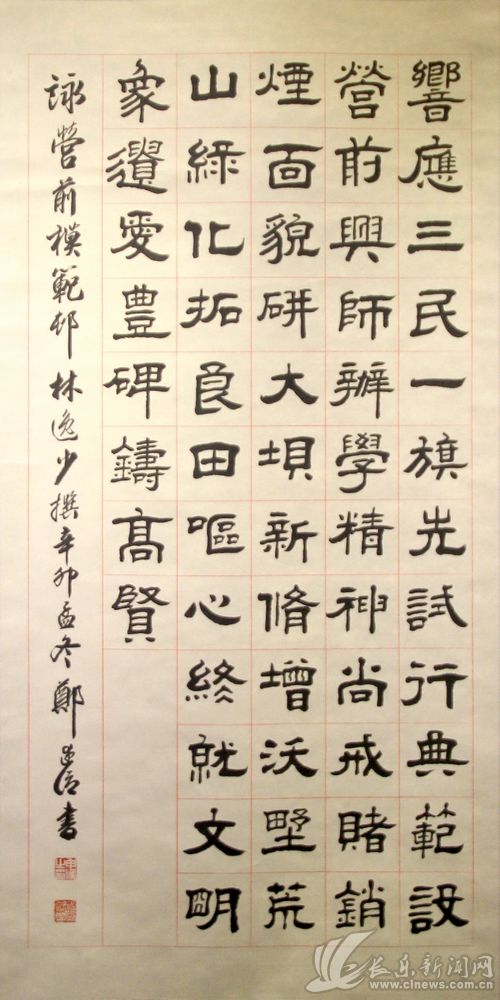 響應三民一旗先試行典範設
營前興師辦學精神尚戒賭銷
煙面貌研大垻新脩增沃墅荒
山綠化拓良田嘔心終就文明
象遺愛豐碑鑄高賢
詠營前模範邨 林逸少撰辛卯孟冬鄭書
长乐新闻网
www.clnews.com.cn